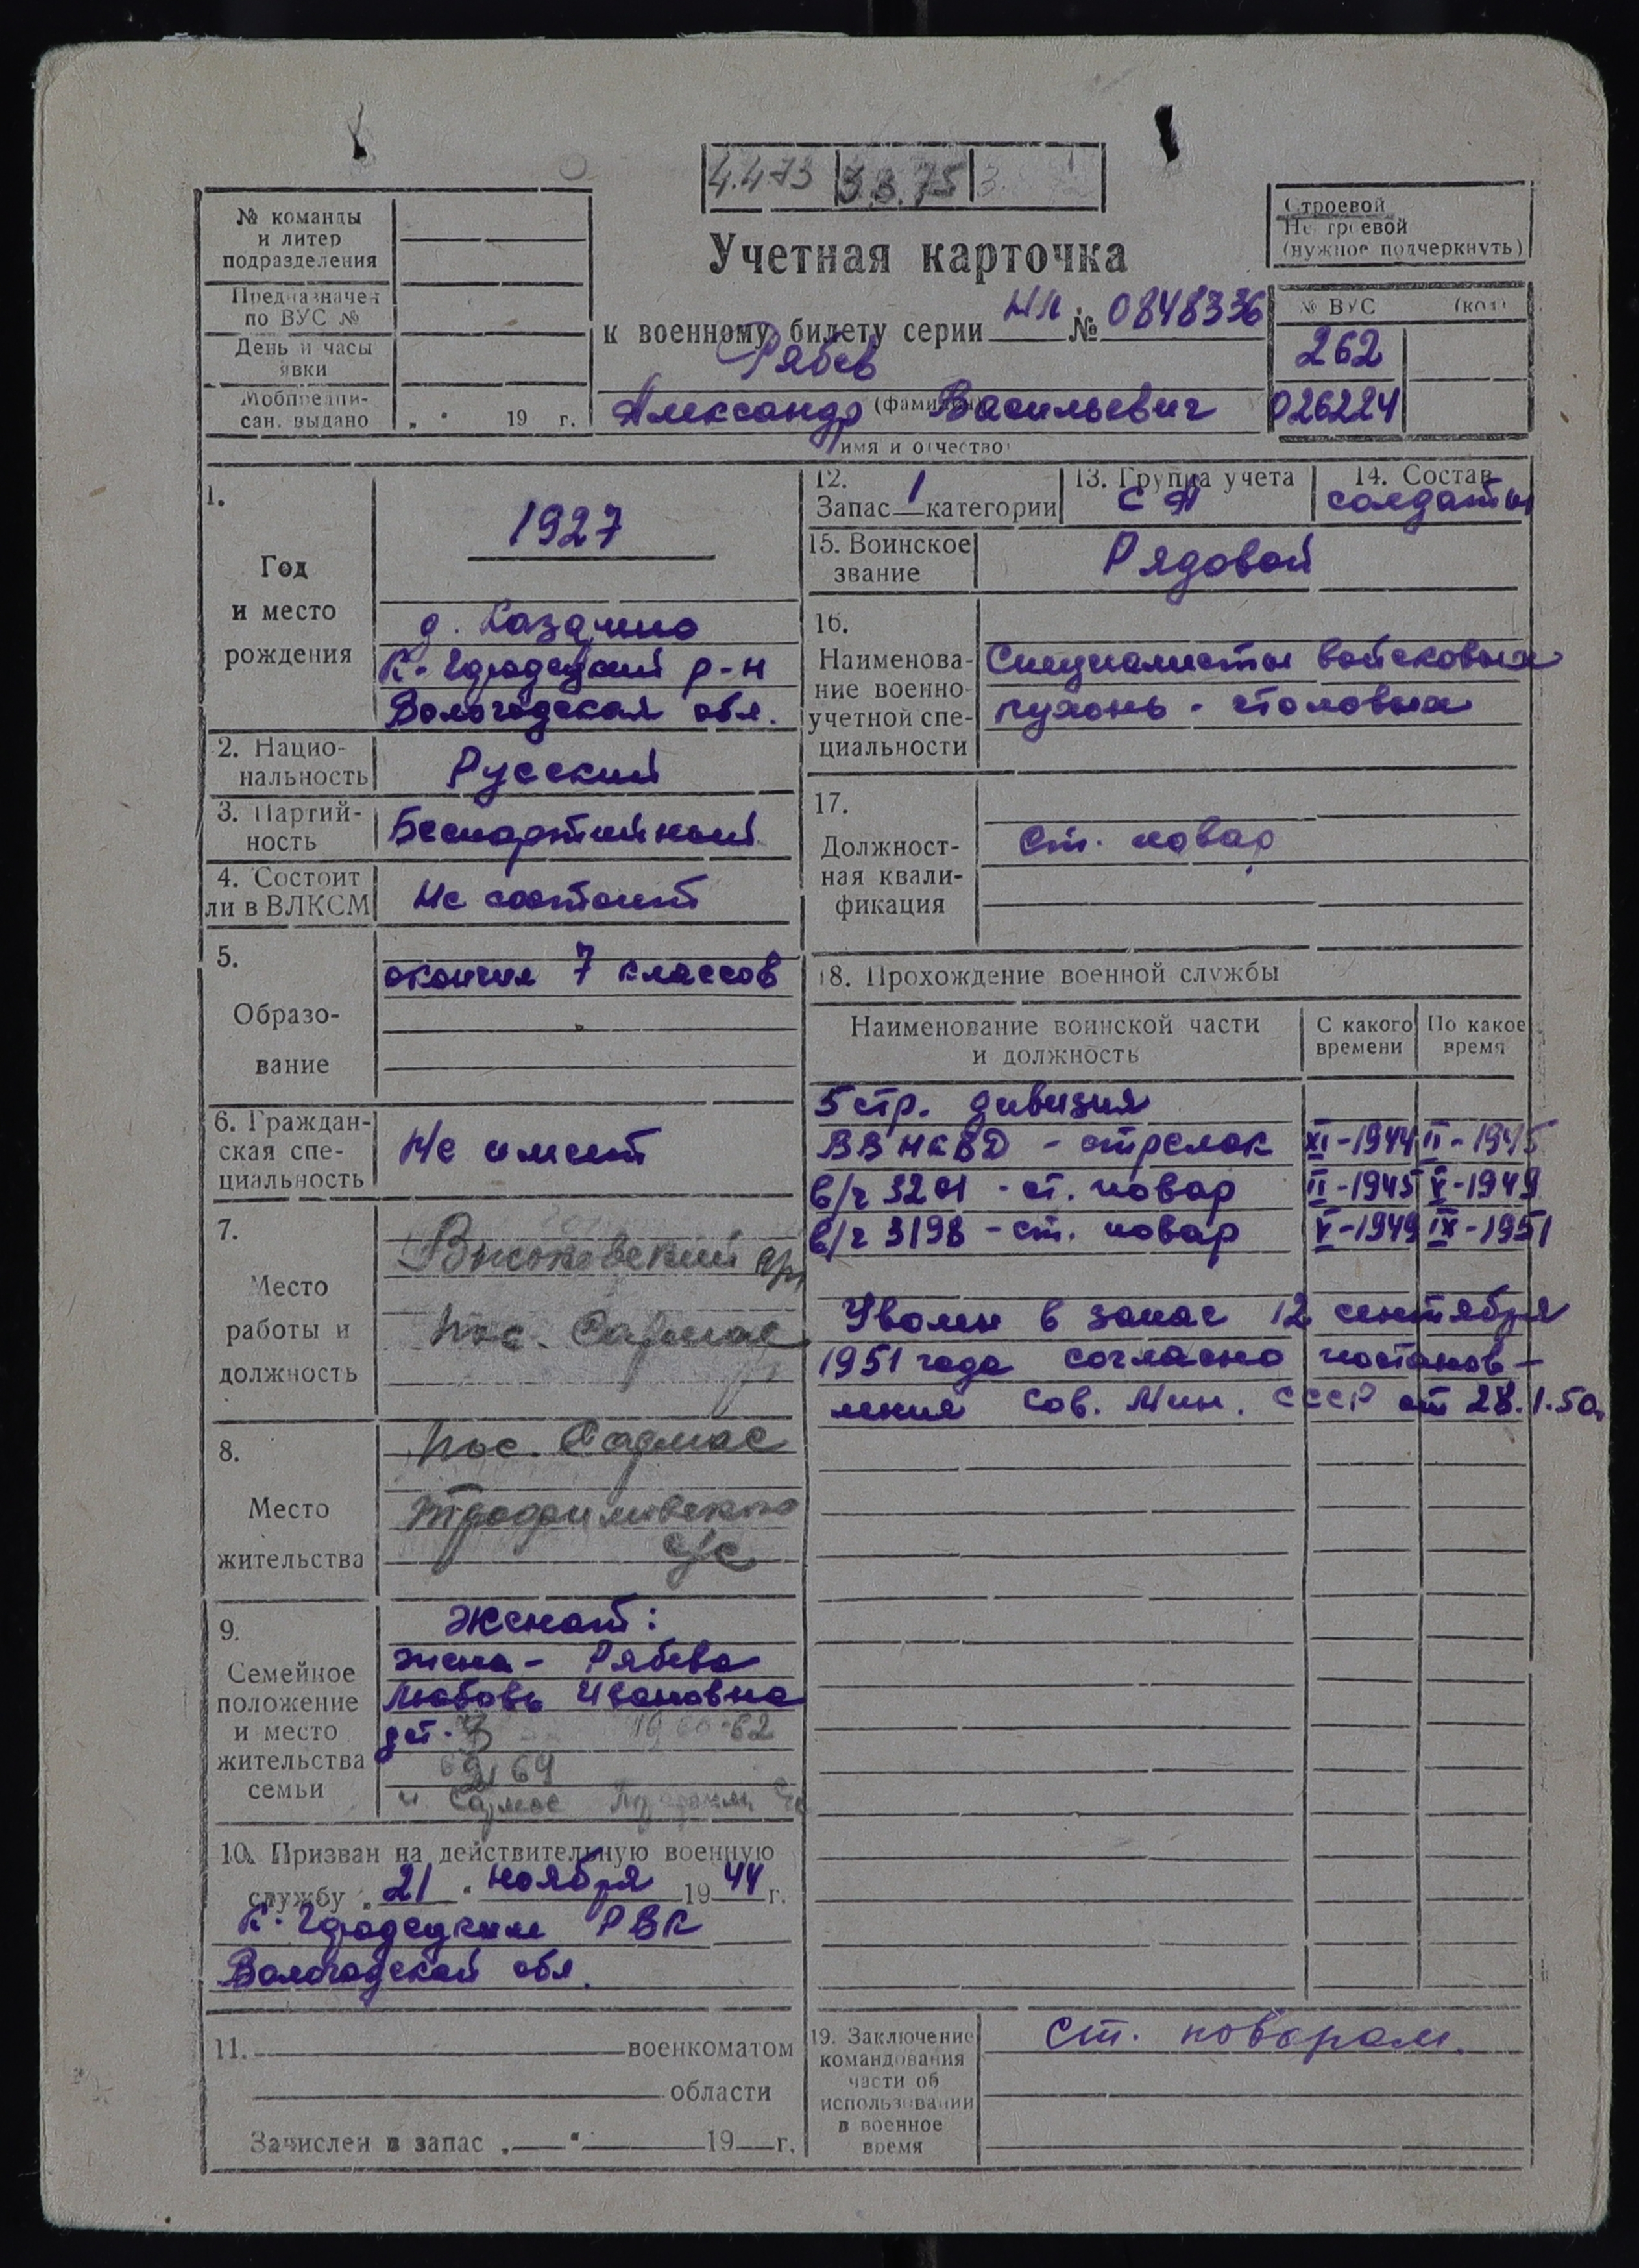 4.4.73 3.3.75 3.
№ команды
и литер
подразделения
Предназначен
по ВУС №
День и часы
явки
Мобпредпи-
сан. выдано „ “ 19 г.
Строевой
Не строевой
(нужное подчеркнуть)
Учетная карточка
к военному билету серии НЛ № 0848336
Рябев
(фамилия)
Александр Васильевич
имя и отчество
№ ВУС (код)
262
026224
1.
Год
и место
рождения
1927
д.
К-Городецкий р-н
Вологодская обл.
2. Нацио-
нальность
Русский
3. Партий-
ность
Беспартийный
4. Состоит
ли в ВЛКСМ
Не состоит
5.
Образо-
вание
окончил 7 классов
6. Граждан-
ская спе-
циальность
Не имеет
7.
Место
работы и
должность
Высоковский
пос. Сармас
8.
Место
жительства
пос. Сармас
Трофимовского
с/с
9.
Семейное
положение
и место
жительства
семьи
Женат:
жена - Рябева
Любовь Ивановна
дет. 62
64
п. Сармас
10. Призван на действительную военную
службу „21“ ноября 1944 г.
К-Городецким РВК
Вологодской обл.
11. военкоматом
области
Зачислен в запас „ “ 19 г.
12.
Запас 1 категории
13. Группа учета
СА
14. Состав
солдаты
15. Воинское
звание
Рядовой
16.
Наименова-
ние военно-
учетной спе-
циальности
Специалисты войсковых
кухонь - столовых
17.
Должност-
ная квали-
фикация
Ст. повар
18. Прохождение военной службы
Наименование воинской части
и должность
С какого
времени
По какое
время
5 стр. дивизия
ВВ НКВД - стрелок XI-1944 II-1945
в/ч 3201 - ст. повар II-1945 V-1949
в/ч 3198 - ст. повар V-1949 IX-1951
Уволен в запас 12 сентября
1951 года согласно постанов-
ления Сов. Мин. СССР от 28.1.50.
19. Заключение
командования
части об
использовании
в военное
время
Ст. поваром.